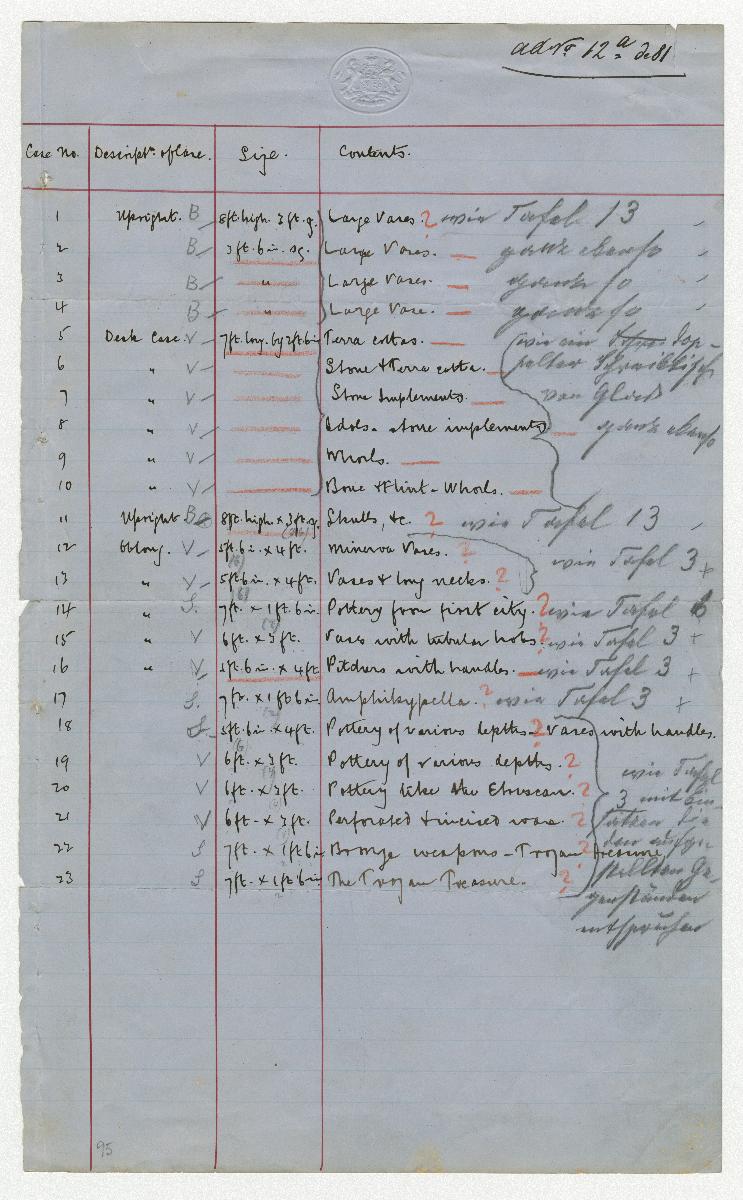 ad No 12a de 81
Case No. Descriptn. of Case. Size. Contents.
1 Upright. B 8ft. high. 3ft. q. Large Vases ? wie Tafel 13
2 B 3ft. 6in. sq. Large Vases. — ganz ebenso
3 B " Large Vases. — ganz so
4 B " Large Vase. — ganz so
5 Desk Case. V 7ft. long. by 2ft. 6in Terra cottas. — wie ein Dop-
6 " V Stone & Terra cotta. — pelter Schreibtisch
7 " V Stone Implements. — von Glas
8 " V Idols - stone implements — ganz ebenso
9 " V Whorls. —
10 " V Bone & Flint - Whorls. —
11 Upright B 8ft. high. x 3ft. q. Skulls, &c. ? wie Tafel 13
12 Oblong. V 5ft. 6in. x 4ft. Minerva Vases. ? wie Tafel 3 +
13 " V 5ft. 6in. x 4ft. Vases & long necks. ?
14 " S. 7ft. x 1ft. 6in. Pottery from first city. ? wie Tafel 6
15 " V 6ft. x 3ft. Vases with tubular hobs. ? wie Tafel 3 +
16 " V 5ft. 6in. x 4ft Pitchers with handles. — wie Tafel 3 +
17 S. 7ft. x 1ft 6in Amphikypella. ? wie Tafel 3 +
18 S. 5ft. 6in. x 4ft. Pottery of various depths - ? Vases with handles.
19 V 6ft. x 3ft. Pottery of various depths. ? wie Tafel
20 V 6ft. x 3ft. Pottery like the Etruscan. ? 3 mit
21 V 6ft. x 3ft. Perforated & incised ware. ?
22 S 7ft. x 1ft 6in Bronze weapons - Trojan treasure ? den aufge-
23 S 7ft. x 1ft 6in The Trojan Treasure. ? stellten Ge-
genständen
entsprechen
95